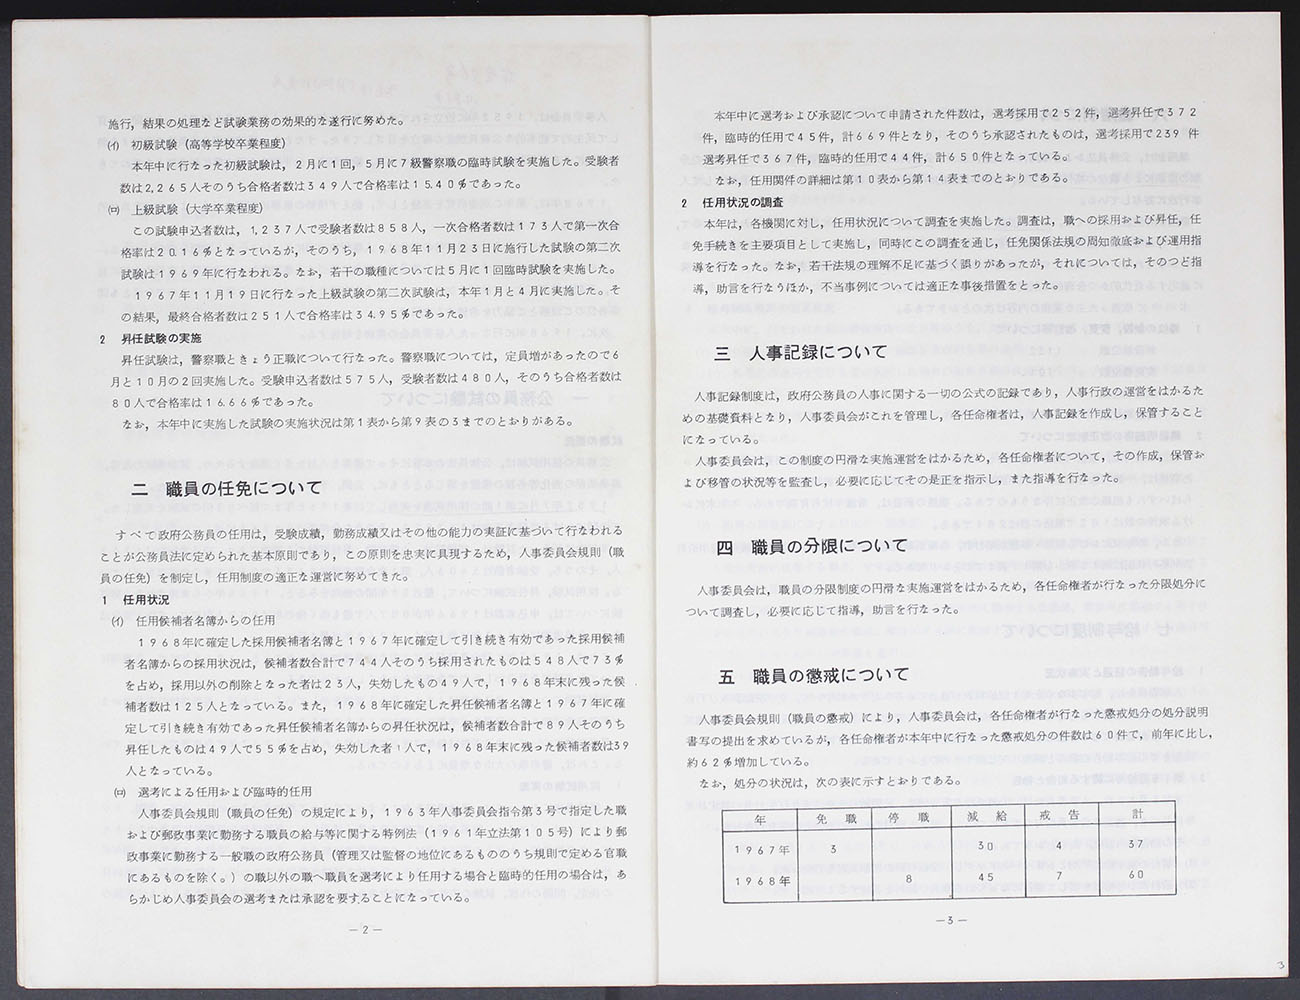 施行，結果の処理など試験業務の効果的な遂行に努めた。
(イ) 初級試験（高等学校卒業程度）
本年中に行なった初級試験は，２月に１回，５月に７級警察職の臨時試験を実施した。受験者
数は2,265人そのうち合格者数は349人で合格率は15.40％であった。
(ロ) 上級試験（大学卒業程度）
この試験申込者数は，1,237人で受験者数は858人，一次合格者数は173人で第一次合
格率は20.16％となっているが，そのうち，1968年11月23日に施行した試験の第二次
試験は1969年に行なわれる。なお，若干の職種については５月に１回臨時試験を実施した。
1967年11月19日に行なった上級試験の第二次試験は，本年１月と４月に実施した。そ
の結果，最終合格者数は251人で合格率は34.95％であった。
２ 昇任試験の実施
昇任試験は，警察職ときょう正職について行なった。警察職については，定員増があったので６
月と10月の２回実施した。受験申込者数は575人，受験者数は480人，そのうち合格者数は
80人で合格率は16.66％であった。
なお，本年中に実施した試験の実施状況は第１表から第９表の３までのとおりがある。
二 職員の任免について
すべて政府公務員の任用は，受験成績，勤務成績又はその他の能力の実証に基づいて行なわれる
ことが公務員法に定められた基本原則であり，この原則を忠実に具現するため，人事委員会規則（職
員の任免）を制定し，任用制度の適正な運営に努めてきた。
１ 任用状況
(イ) 任用候補者名簿からの任用
1968年に確定した採用候補者名簿と1967年に確定して引き続き有効であった採用候補
者名簿からの採用状況は，候補者数合計で744人そのうち採用されたものは548人で73％
を占め，採用以外の削除となった者は23人，失効したもの49人で，1968年末に残った候
補者数は125人となっている。また，1968年に確定した昇任候補者名簿と1967年に確
定して引き続き有効であった昇任候補者名簿からの昇任状況は，候補者数合計で89人そのうち
昇任したものは49人で55％を占め，失効した者１人で，1968年末に残った候補者数は39
人となっている。
(ロ) 選考による任用および臨時的任用
人事委員会規則（職員の任免）の規定により，1963年人事委員会指令第３号で指定した職
および郵政事業に勤務する職員の給与等に関する特例法（1961年立法第105号）により郵
政事業に勤務する一般職の政府公務員（管理又は監督の地位にあるもののうち規則で定める官職
にあるものを除く。）の職以外の職へ職員を選考により任用する場合と臨時的任用の場合は，あ
らかじめ人事委員会の選考または承認を要することになっている。
―2―
本年中に選考および承認について申請された件数は，選考採用で252件，選考昇任で372
件，臨時的任用で45件，計669件となり，そのうち承認されたものは，選考採用で239 件
選考昇任で367件，臨時的任用で44件，計650件となっている。
なお，任用関件の詳細は第10表から第14表までのとおりである。
２ 任用状況の調査
本年は，各機関に対し，任用状況について調査を実施した。調査は，職への採用および昇任，任
免手続きを主要項目として実施し，同時にこの調査を通じ，任免関係法規の周知徹底および運用指
導を行なった。なお，若干法規の理解不足に基づく誤りがあったが，それについては，そのつど指
導，助言を行なうほか，不当事例については適正な事後措置をとった。
三 人事記録について
人事記録制度は，政府公務員の人事に関する一切の公式の記録であり，人事行政の運営をはかるた
めの基礎資料となり，人事委員会がこれを管理し，各任命権者は，人事記録を作成し，保管すること
になっている。
人事委員会は，この制度の円滑な実施運営をはかるため，各任命権者について，その作成，保管お
よび移管の状況等を監査し，必要に応じてその是正を指示し，また指導を行なった。
四 職員の分限について
人事委員会は，職員の分限制度の円滑な実施運営をはかるため，各任命権者が行なった分限処分に
ついて調査し，必要に応じて指導，助言を行なった。
五 職員の懲戒について
人事委員会規則（職員の懲戒）により，人事委員会は，各任命権者が行なった懲戒処分の処分説明
書写の提出を求めているが，各任命権者が本年中に行なった懲戒処分の件数は60件で，前年に比し，
約62％増加している。
なお，処分の状況は，次の表に示すとおりである。
年 免職 停職 減給 戒告 計
1967年 3 30 4 37
1968年 8 45 7 60
―3―
3